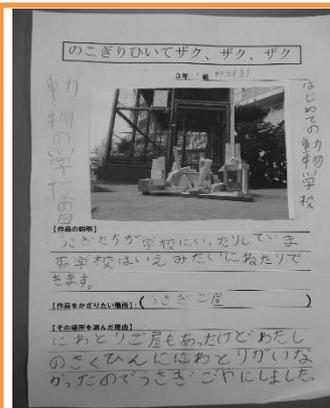 のこぎりひいてザク、ザク、ザク
3年 組
はじめての動物学校
動物の学校の
【作品の説明】
うさぎたちが学校にいったりしていま
す。学校はいえみたいにねたりで
きます。
【作品をかざりたい場所】:(うさぎご屋)
【その場所を選んだ理由】
にわとりご屋もあったけどわたし
のさくひんににわとりがいな
かったのでうさぎごやにしました。